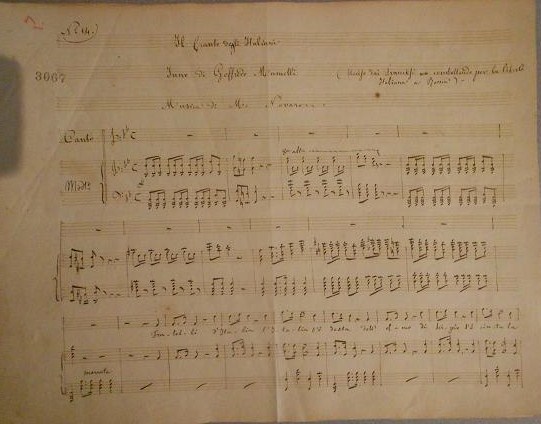 2.
No 14.
Il Canto degli Italiani
3067
Inno di Goffredo Mameli
( Ucciso dai Francesi combattendo per la Libertà
Italiana a Roma ).
Musica di M. Novaro
Canto
8va alta
Fra-tel-li d'Ita-lia l'I-ta-lia s'è desta dell' el-mo di Sci-pio s'è cin-ta la
marcato